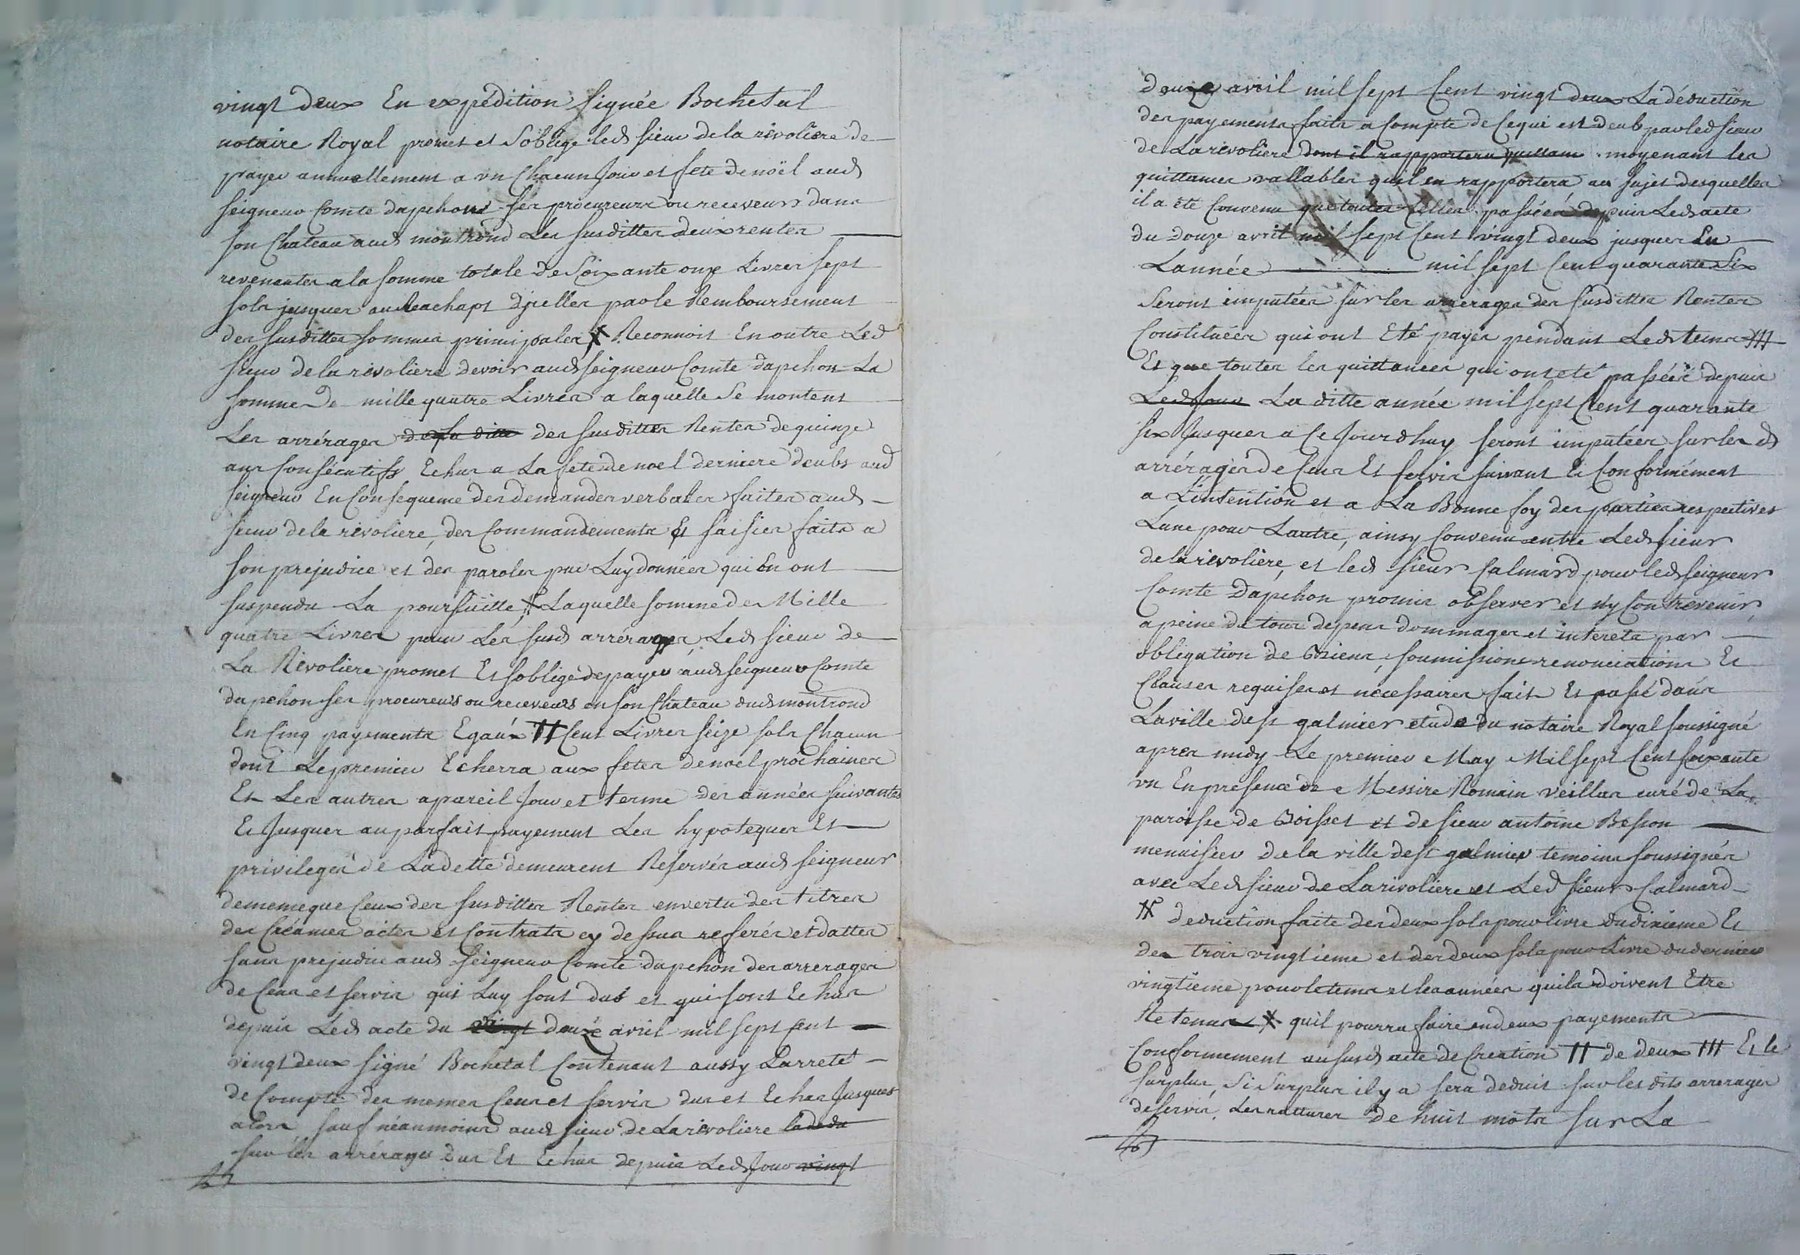 vingt deux En expedition signée Bochetal
notaire Royal promet et s'oblige led sieur de la rivoliere de
payer annuellement a un Chacun Jour et fete de noël aud
seigneur Comte dapchon ses procureurs ou receveurs dans
son Chateau aud montrond Les susdittes deux rentes
revenantes a la somme totale de soixante onze Livres sept
sols jusques au Reachapt d'jcelles par le Remboursement
des susdittes sommes principales X Reconnoit En outre Led
sieur de la rivoliere devoir aud seigneur Comte dapchon La
somme De mille quatre Livres a laquelle Se montent
Les arrérages de la ditte des susdittes Rentes de quinze
ans Consécutifs Echus a La fete de noel derniere deubs aud
seigneur En Consequence des demandes verbales faites aud
sieur de la rivoliere, des Commandements Et saisies faits a
son prejudice et des paroles par Luy données qui En ont
suspendu La poursuitte, X Laquelle somme de Mille
quatre Livres pour Les susd arrérages, Led sieur de
La Rivoliere promet Et s'oblige de payer aud seigneur Comte
dapchon ses procureurs ou receveurs en son Chateau aud montrond
En Cinq payements Egaux # Cent Livres seize sols Chacun
dont Le premier Echerra aux fetes de noel prochaines
Et Les autres a pareil Jour et terme des années suivantes
Et Jusques au parfait payement Les hypoteques Et
privileges de Ladette demeurent Reservés aud seigneur
de meme que Ceux des susdittes Rentes en vertu des titres
des Créances actes et Contrats cy dessus referés et dattés
sans prejudice aud seigneur Comte dapchon des arrerages
de Cens et servis qui Luy sont dus et qui sont Echus
depuis Led acte du vingt douze avril mil sept cent
vingt deux signé Bochetal Contenant aussy L'arreté
de Compte des memes Cens et servis dus et Echus Jusques
alors sauf néanmoins aud sieur de La rivoliere
sur les arrérages Dus Et Echus depuis Led Jour vingt
douze avril mil sept Cent vingt deux La déduction
des payements faits a Compte de Ce qui est deub par led sieur
de La rivoliere dont il rapportera quittance moyenant les
quittances vallables qu'il en rapportera au sujet desquelles
il a été Convenu que toutes Celles passées depuis Led acte
du douze avril mil sept Cent vingt deux jusques En
L'année mil sept Cent quarante Six
Seront imputées sur les arrerages des susdittes Rentes
Constituées qui ont Eté payés pendant Led tems #
Et que toutes les quittances qui ont eté passées depuis
Led Jour La ditte année mil sept Cent quarante
six Jusques a Ce Jourdhuy seront imputées sur les d
arrérages de Cens Et servis suivant Et Conformément
a L'intention et a La Bonne foy des parties respectives
L'une pour L'autre, ainsy Convenu entre Led sieur
de la rivoliere, et led sieur Calmard pour led seigneur
Comte Dapchon promis observer et n'y Contrevenir,
a peine de tous depens dommages et interets par
obligation de Biens, soumissions renonciations Et
Clauses requises et nécessaires fait Et passé dans
La ville de st galmier etude du notaire Royal soussigné
apres midy Le premier May Mil sept Cent soixante
un En présence de Messire Romain veillas curé de La
paroisse de Boisset et de sieur antoine Besson
menuisier de la ville de st galmier temoins soussignés
avec Led sieur de La rivoliere et Led sieur Calmard
# deduction faite des deux sols pour livre du dixieme Et
des trois vingtieme et des deux sols pour Livre du dernier
vingtieme pour le tems et les années qu'ils doivent Etre
Retenus X qu'il pourra faire en deux payements
Conformement au susd acte de Creation # de deux # Et le
surplus, si surplus il y a sera deduit sur lesdits arrerages
de servis. Les ratures de huit mots sur La